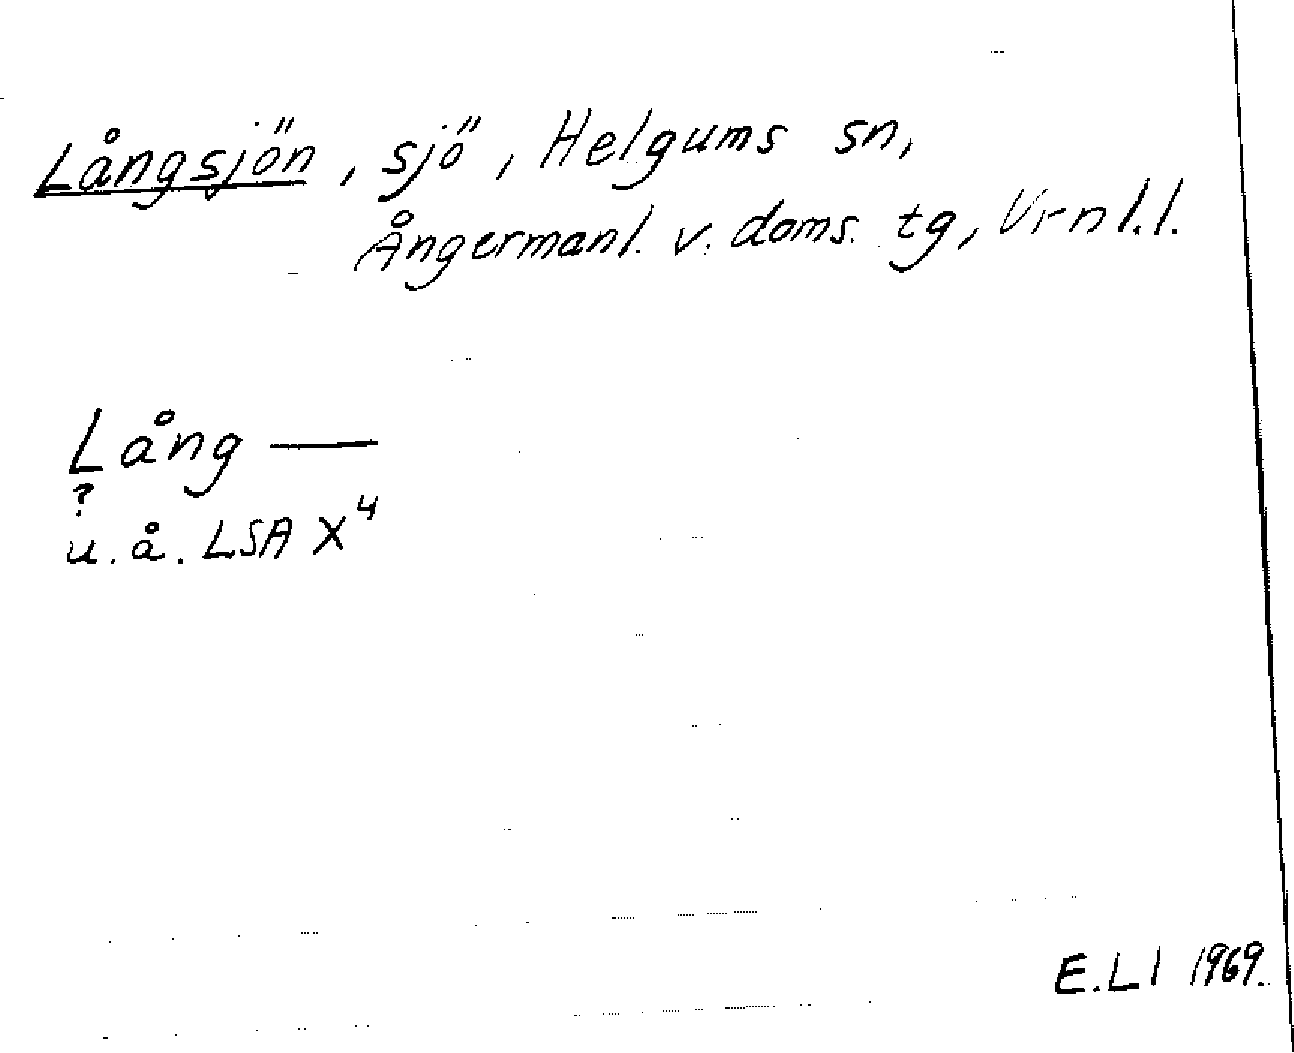 Långsjön, sjö, Helgums sn,
Ångermanl. v. doms. tg, Vrnl.l.
Lång —
?
u. å. LSA X⁴
E.Ll 1969.